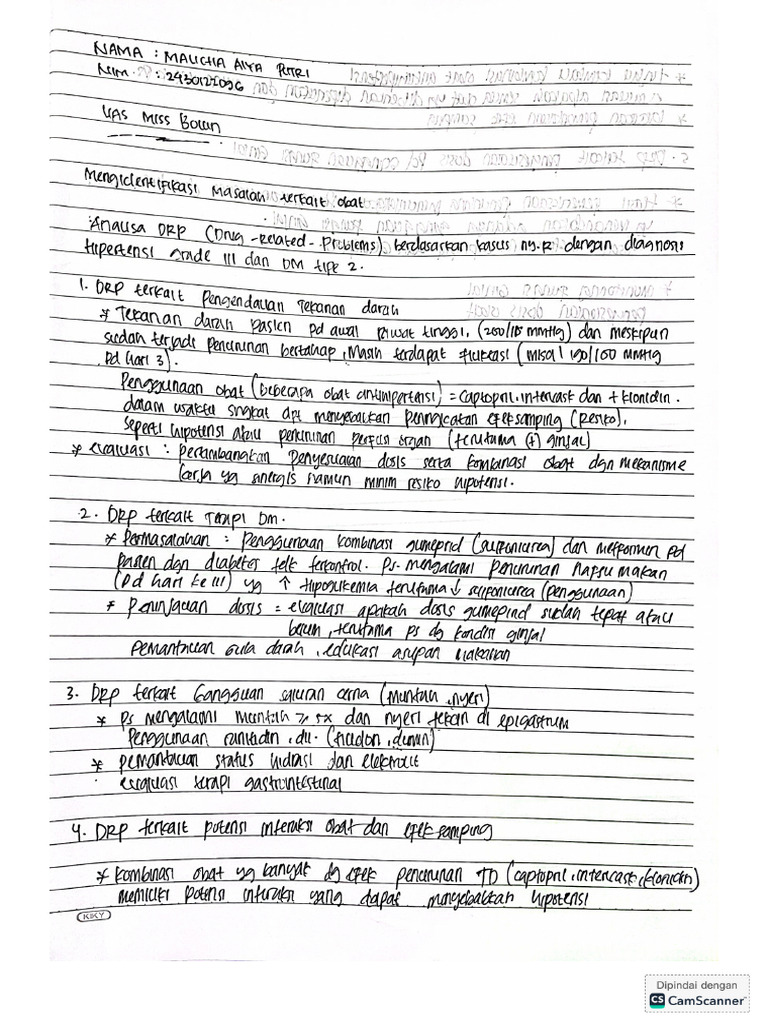 NAMA : MALICHA AIYA PUTRI
NIM : 2430122096
UAS MISS Bolun
Mengidentifikasi Masalah terkait obat
Analisa DRP (Drug-Related-Problems) berdasarkan kasus ny.R dengan diagnosis
Hipertensi Grade III dan DM tipe 2.
1. DRP terkait Pengendalian Tekanan darah
* Tekanan darah Pasien pd awal Riwat tinggi, (200/115 mmHg) dan meskipun
sudah terjadi penurunan bertahap, Masih terdapat fluktasi (misal 190/100 mmHg
Pd hari 3).
Penggunaan obat (beberapa obat antihipertensi) = Captopril, intercask dan + klonidin.
dalam waktu singkat dpt menyebabkan peningkatan efek samping (resiko),
seperti hipotensi atau penurunan perfusi organ (terutama (+) ginjal)
* evaluasi : pertimbangkan Penyesuaian dosis serta kombinasi obat dgn mekanisme
kerja yg sinergis namun minim resiko hipotensi.
2. DRP terkait Terapi DM.
* Permasalahan : Penggunaan kombinasi glimeprid (sulfonilurea) dan metformin pd
Pasien dgn diabetes tdk terkontrol. Ps. mengalami Penurunan nafsu makan
(Pd hari ke III) yg ↑ hipoglikemia terutama ↓ sulfonilurea (penggunaan)
* Peninjauan dosis = evaluasi apakah dosis glimeprind sudah tepat atau
belum, terutama ps dg kondisi ginjal
Pemantauan Gula darah, edukasi asupan makanan
3. DRP terkait Gangguan saluran cerna (muntah, nyeri)
* Ps mengalami muntah ≥ 5x dan nyeri tekan di epigastrum
Penggunaan ranitidin, dll.
* pemantauan status hidrasi dan elektrolit
evaluasi terapi gastrointestinal
4. DRP terkait potensi interaksi obat dan efek samping
* Kombinasi obat yg banyak dg efek penurunan TD (captopril, intercask, klonidin)
memiliki potensi interaksi yang dapat menyebabkan hipotensi
KIKY
Dipindai dengan
CS CamScanner